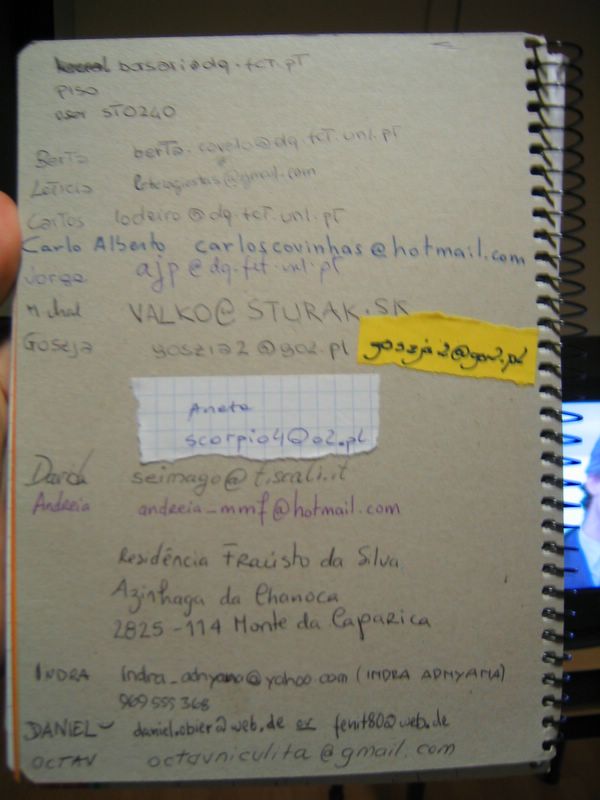 bosari@dq.fct.pt
piso
user STO240
Berta berta.covelo@dq.fct.unl.pt
Letícia @gmail.com
Carlos lodeiro@dq.fct.unl.pt
Carlo Alberto carloscovinhas@hotmail.com
Jorge ajp@dq.fct.unl.pt
Michal VALKO@STURAK.SK
Goszja goszia2@go2.pl goszja2@go2.pl
Aneta
scorpio4@o2.pl
seimago@tiscali.it
Andreia andreia_mmf@hotmail.com
Residência Fraústo da Silva
Azinhaga da Chanoca
2825-114 Monte da Caparica
INDRA indra_adnyana@yahoo.com (INDRA ADNYANA)
969 555 368
DANIEL daniel.obier@web.de or fenit80@web.de
OCTAV octavniculita@gmail.com